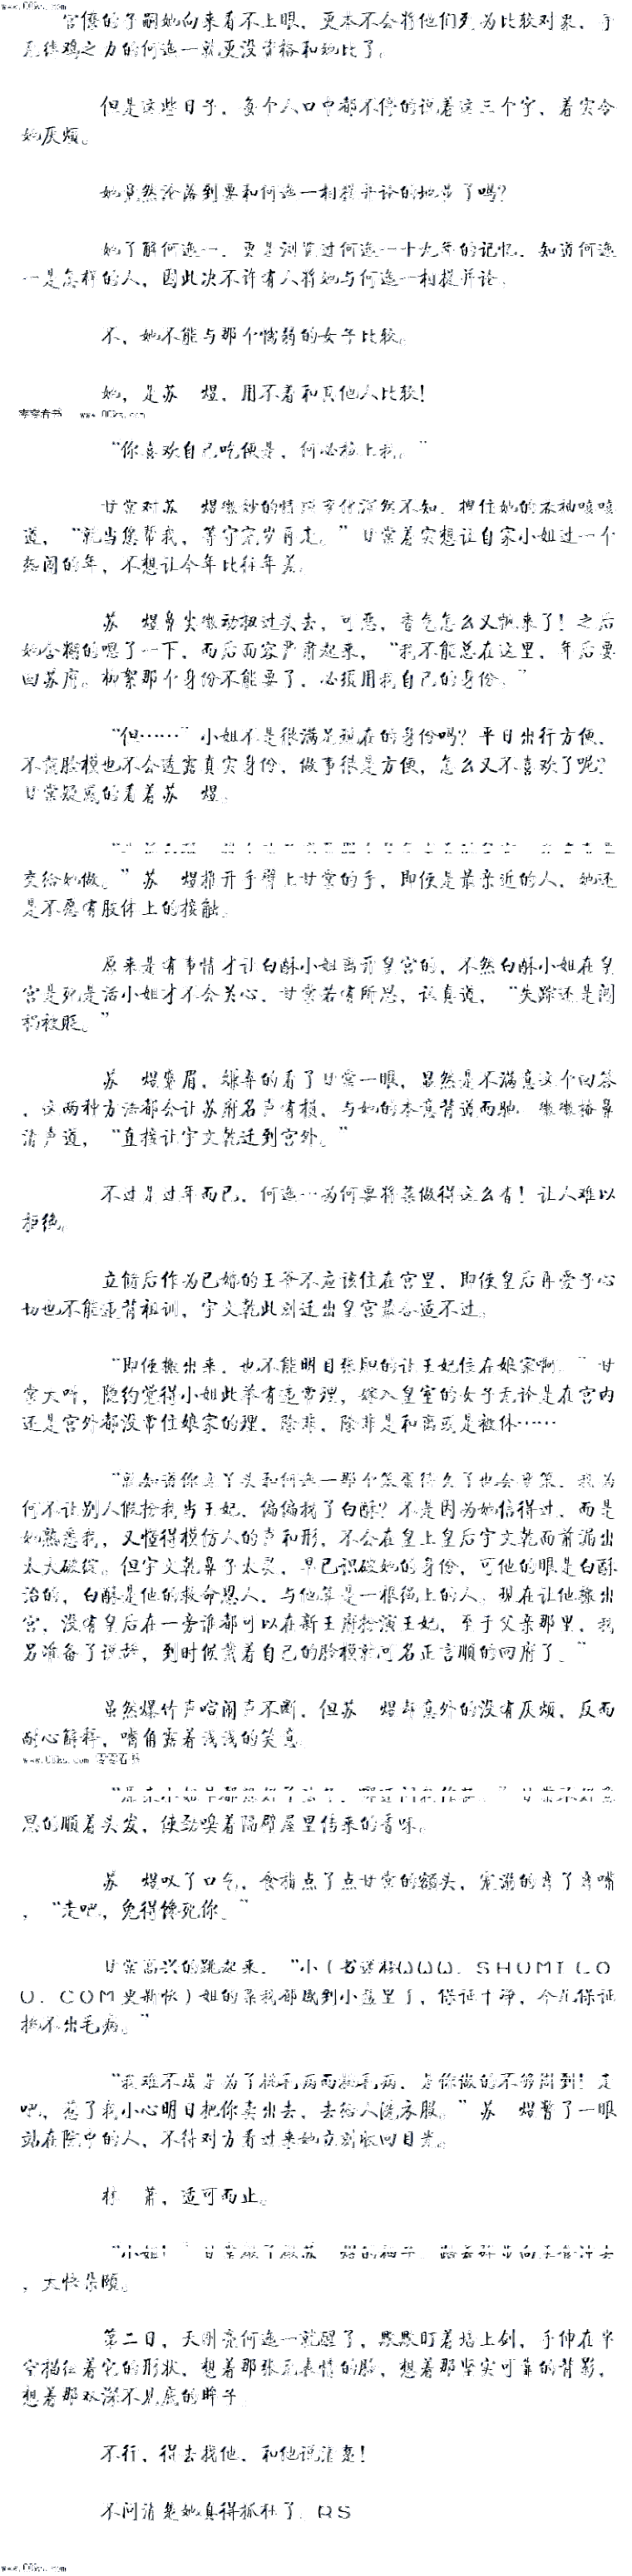 www.00ks.com
官僚的子嗣她向来看不上眼，更本不会将他们列为比较对象，手
无缚鸡之力的何逸一就更没资格和她比了。
但是这些日子，每个人口中都不停的说着这三个字，着实令
她厌烦。
她竟然沦落到要和何逸一相提并论的地步了吗？
她了解何逸一，更是浏览过何逸一十九年的记忆，知道何逸
一是怎样的人，因此决不许有人将她与何逸一相提并论。
不，她不能与那个懦弱的女子比较。
她，是苏　煜，用不着和其他人比较！
零零看书　www.00ks.com
“你喜欢自己吃便是，何必拉上我。”
甘棠对苏　煜微妙的情绪变化浑然不知，拽住她的衣袖咳咳
道，“就当您帮我，等守完岁再走。”甘棠着实想让自家小姐过一个
热闹的年，不想让今年比往年差。
苏　煜鼻尖微动扭过头去，可恶，香气怎么又飘来了！之后
她含糊的嗯了一下，而后面容严肃起来，“我不能总在这里，年后要
回苏府。柳絮那个身份不能要了，必须用我自己的身份。”
“但……”小姐不是很满足现在的身份吗？平日出行方便，
不露脸模也不会透露真实身份，做事很是方便，怎么又不喜欢了呢？
甘棠疑惑的看着苏　煜。
交给她做。”苏　煜推开手臂上甘棠的手，即便是最亲近的人，她还
是不愿有肢体上的接触。
原来是有事情才让白酥小姐离开皇宫的，不然白酥小姐在皇
宫是死是活小姐才不会关心，甘棠若有所思，认真道，“失踪还是闯
祸被贬。”
苏　煜蹙眉，嫌弃的看了甘棠一眼，显然是不满意这个回答
，这两种方法都会让苏府名声有损，与她的本意背道而驰　微微捂鼻
清声道，“直接让宇文乾迁到宫外。”
不过是过年而已，何逸一为何要将菜做得这么香！让人难以
拒绝。
立储后作为已婚的王爷不应该住在宫里，即使皇后再爱子心
切也不能违背祖训，宇文乾此刻迁出皇宫最合适不过。
“即便搬出来，也不能明目张胆的让王妃住在娘家啊。”甘
棠大吓，隐约觉得小姐此举有违常理，嫁入皇室的女子无论是在宫内
还是宫外都没常住娘家的理，除非，除非是和离或是被休……
“就知道你这丫头和何逸一那个笨蛋待久了也会变笨，我为
何不让别人假扮我当王妃，偏偏找了白酥？不是因为她信得过，而是
她熟悉我，又懂得模仿人的声和形，不会在皇上皇后宇文乾面前漏出
太大破绽。但宇文乾鼻子太灵，早已识破她的身份，可他的眼是白酥
治的，白酥是他的救命恩人，与他算是一根绳上的人，现在让他搬出
宫，没有皇后在一旁谁都可以在新王府扮演王妃，至于父亲那里，我
另准备了说辞，到时候戴着自己的脸模就可名正言顺的回府了。”
虽然爆竹声喧闹声不断，但苏　煜却意外的没有厌烦，反而
耐心解释，嘴角露着浅浅的笑意
www.00ks.com 零零看书
思的顺着头发，使劲嗅着隔壁屋里传来的香味。
苏　煜叹了口气，食指点了点甘棠的额头，宠溺的弯了弯嘴
，“走吧，免得馋死你。”
甘棠高兴的跳起来，“小（书迷楼ＷＷＷ．ＳＨＵＭＩＬＯ
Ｕ．ＣＯＭ更新快）姐的菜我都盛到小盘里了，保证干净，今儿保证
挑不出毛病。”
“我难不成是为了挑毛病而挑毛病，是你做的不够周到！走
吧，惹了我小心明日把你卖出去，去给人洗衣服。”苏　煜瞥了一眼
站在院中的人，不待对方看过来她立刻收回目光。
林　萧，适可而止。
，大快朵颐。
第二日，天刚亮何逸一就醒了，默默盯着墙上剑，手伸在半
空描绘着它的形状，想着那张无表情的脸，想着那坚实可靠的背影，
想着那双深不见底的眸子
不行，得去找他，和他说清楚！
不问清楚她真得抓狂了。ＲＳ
www.00ks.com